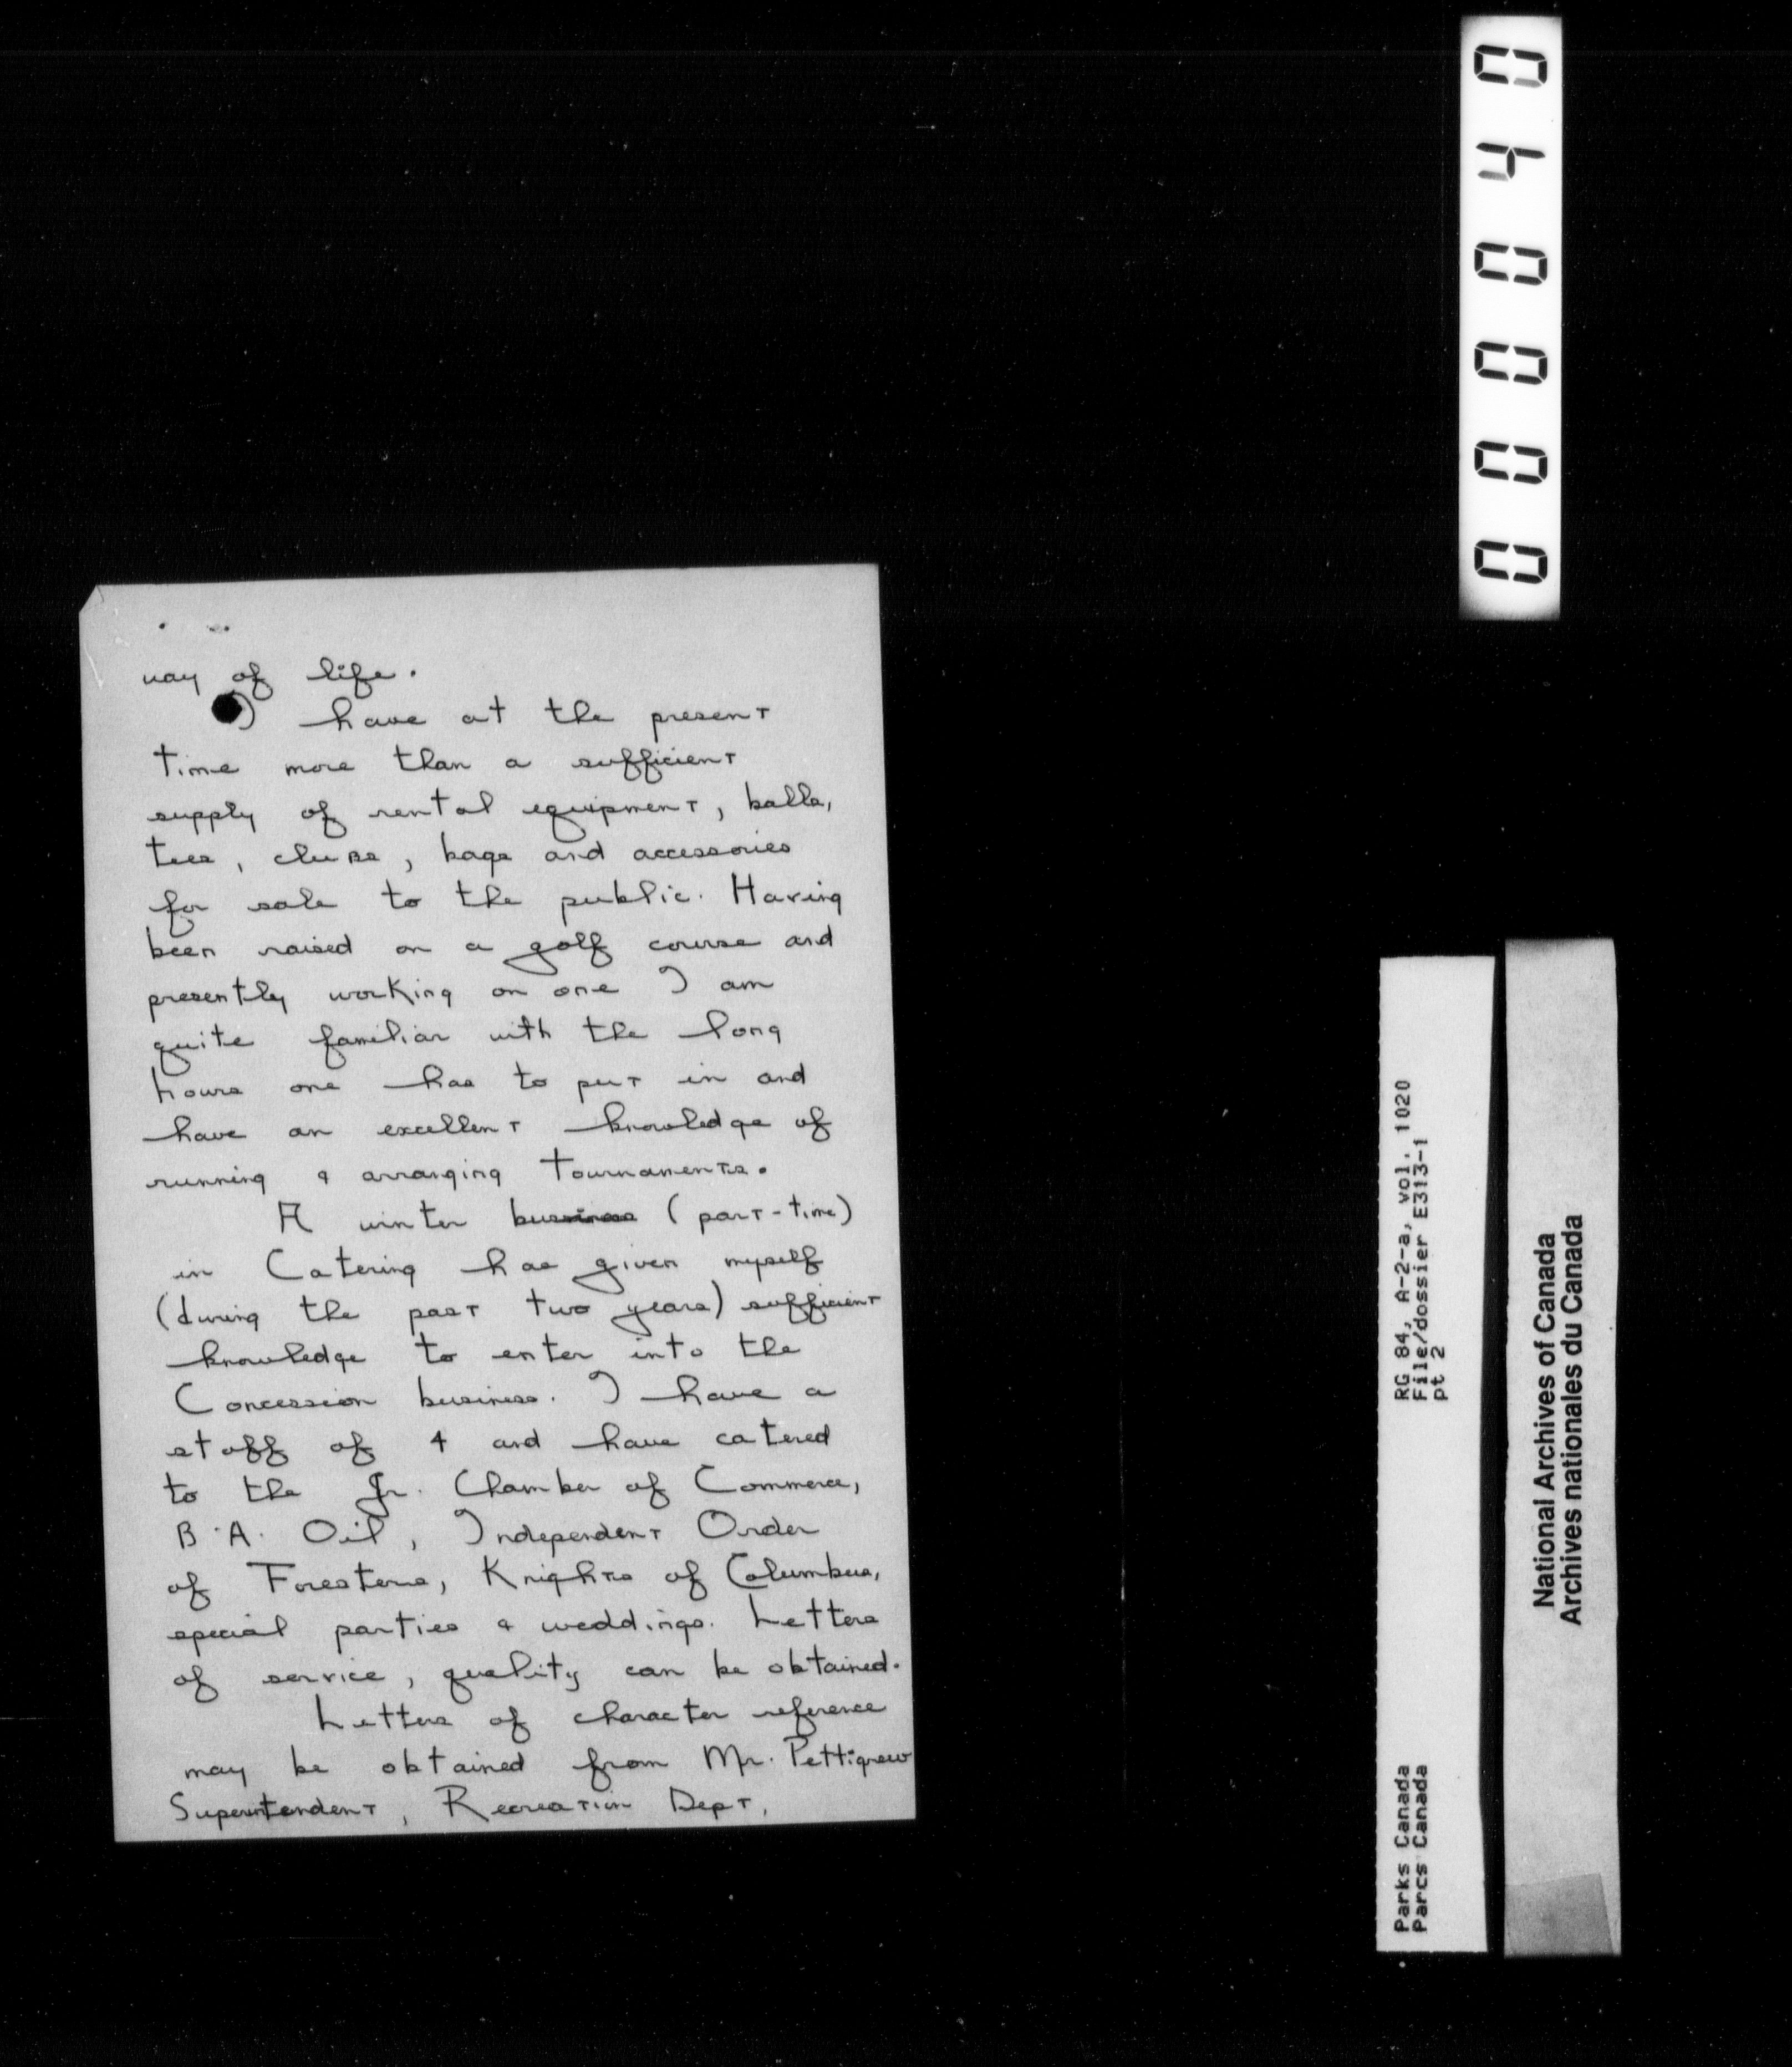 way of life.
I have at the present
time more than a sufficient
supply of rental equipment, balls,
tees, clubs, bags and accessories
for sale to the public. Having
been raised on a golf course and
presently working on one I am
quite familiar with the long
hours one has to put in and
have an excellent knowledge of
running & arranging tournaments.
A winter business (part-time)
in Catering has given myself
(during the past two years) sufficient
knowledge to enter into the
Concession business. I have a
staff of 4 and have catered
to the Jr. Chamber of Commerce,
B.A. Oil, Independent Order
of Foresters, Knights of Columbus,
special parties & weddings. Letters
of service, quality can be obtained.
Letters of character reference
may be obtained from Mr. Pettigrew
Superintendent, Recreation Dept,
000040
RG 84, A-2-a, vol. 1020
File/dossier E313-1
pt 2
Parks Canada
Parcs Canada
National Archives of Canada
Archives nationales du Canada